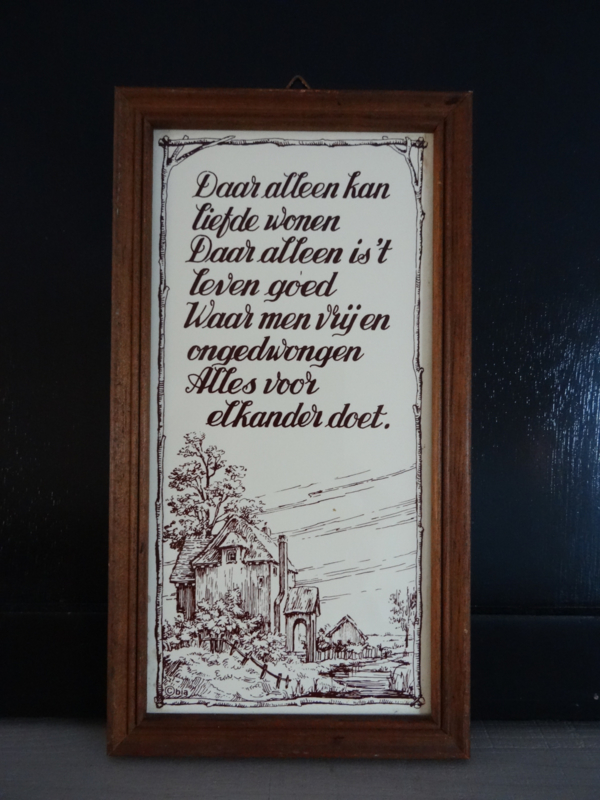 Daar alleen kan
liefde wonen
Daar alleen is 't
leven goed
Waar men vrij en
ongedwongen
Alles voor
elkander doet.